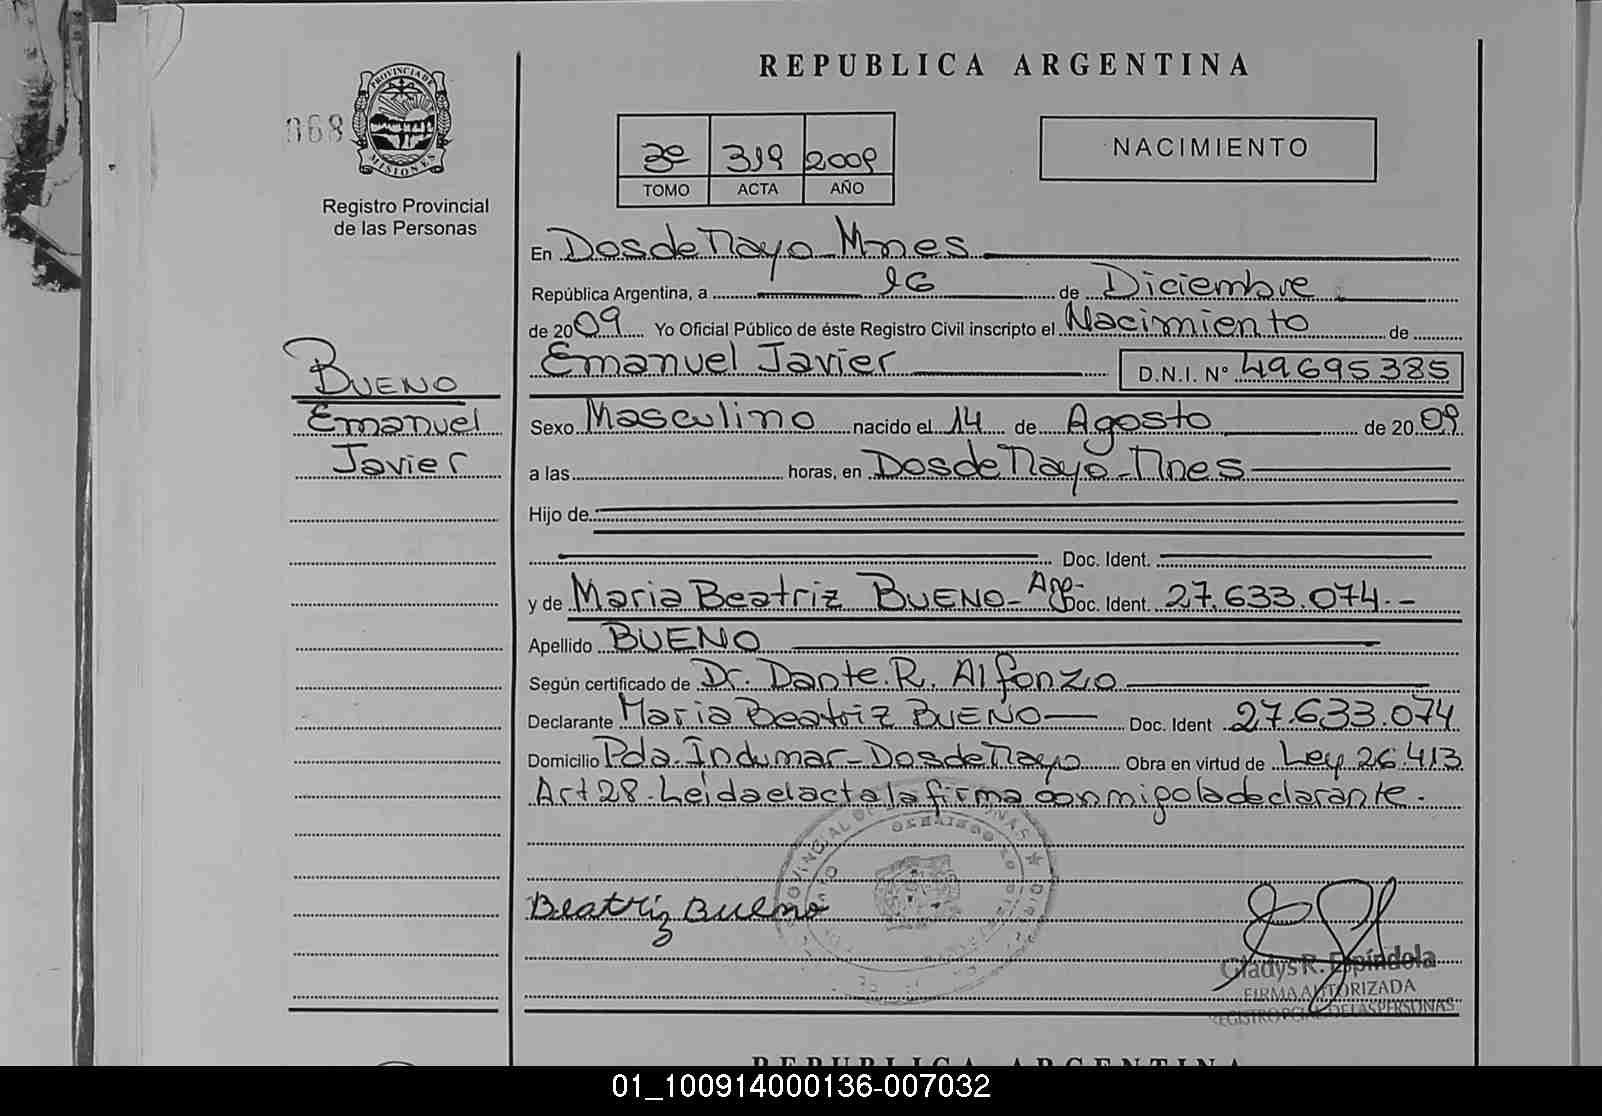 REPUBLICA ARGENTINA
068
PROVINCIA DE MISIONES
Registro Provincial
de las Personas
3º 319 2009
TOMO ACTA AÑO
NACIMIENTO
En Dos de Mayo - Mnes
República Argentina, a 16 de Diciembre
de 2009 Yo Oficial Público de éste Registro Civil inscripto el Nacimiento de
Emanuel Javier D.N.I. Nº 49695385
BUENO
Emanuel
Javier
Sexo Masculino nacido el 14 de Agosto de 2009
a las horas, en Dos de Mayo - Mnes
Hijo de
Doc. Ident.
y de Maria Beatriz BUENO - Arg- Doc. Ident. 27.633.074.-
Apellido BUENO
Según certificado de Dr. Dante. R. Alfonzo
Declarante Maria Beatriz BUENO Doc. Ident 27.633.074
Domicilio Pda. Indumar - Dos de Mayo Obra en virtud de Ley 26.413
Art 28. Leída el acta la firma conmigo la declarante.
Beatriz Bueno
Gladys R. Espíndola
FIRMA AUTORIZADA
REGISTRO PCIAL. DE LAS PERSONAS
REPUBLICA ARGENTINA
01_100914000136-007032